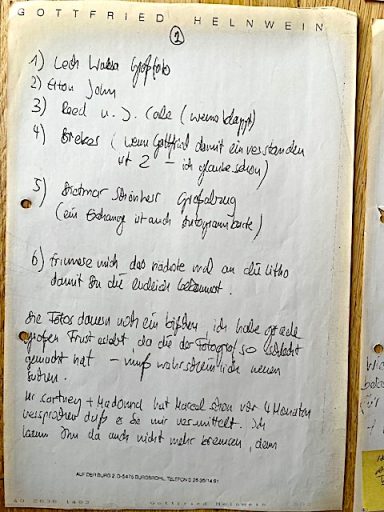 GOTTFRIED HELNWEIN
1
1) Lech Walesa Großfoto
2) Elton John
3) Reed u. J. Cale (wenns klappt)
4) Breker (wenn Gottfried damit einverstanden
ist 2 – ich glaube schon)
5) Dietmar Schönherr Großabzug
(ein Exchange ist auch Autogrammkarte)
6) Erinnere mich das nächste mal an die Litho
damit Du die endlich bekommst.
Die Fotos dauern noch ein bißchen, ich habe gerade
großen Frust erlebt, da die der Fotograf so schlecht
gemacht hat – muß wahrscheinlich neuen
suchen.
Mc Cartney + Madonna hat Marcel schon vor 4 Monaten
versprochen daß er sie mir vermittelt. Ich
kann ihn da auch nicht mehr bremsen, denn
AUF DER BURG 2, D-5475 BURGBROHL, TELEFON
Gottfried Helnwein